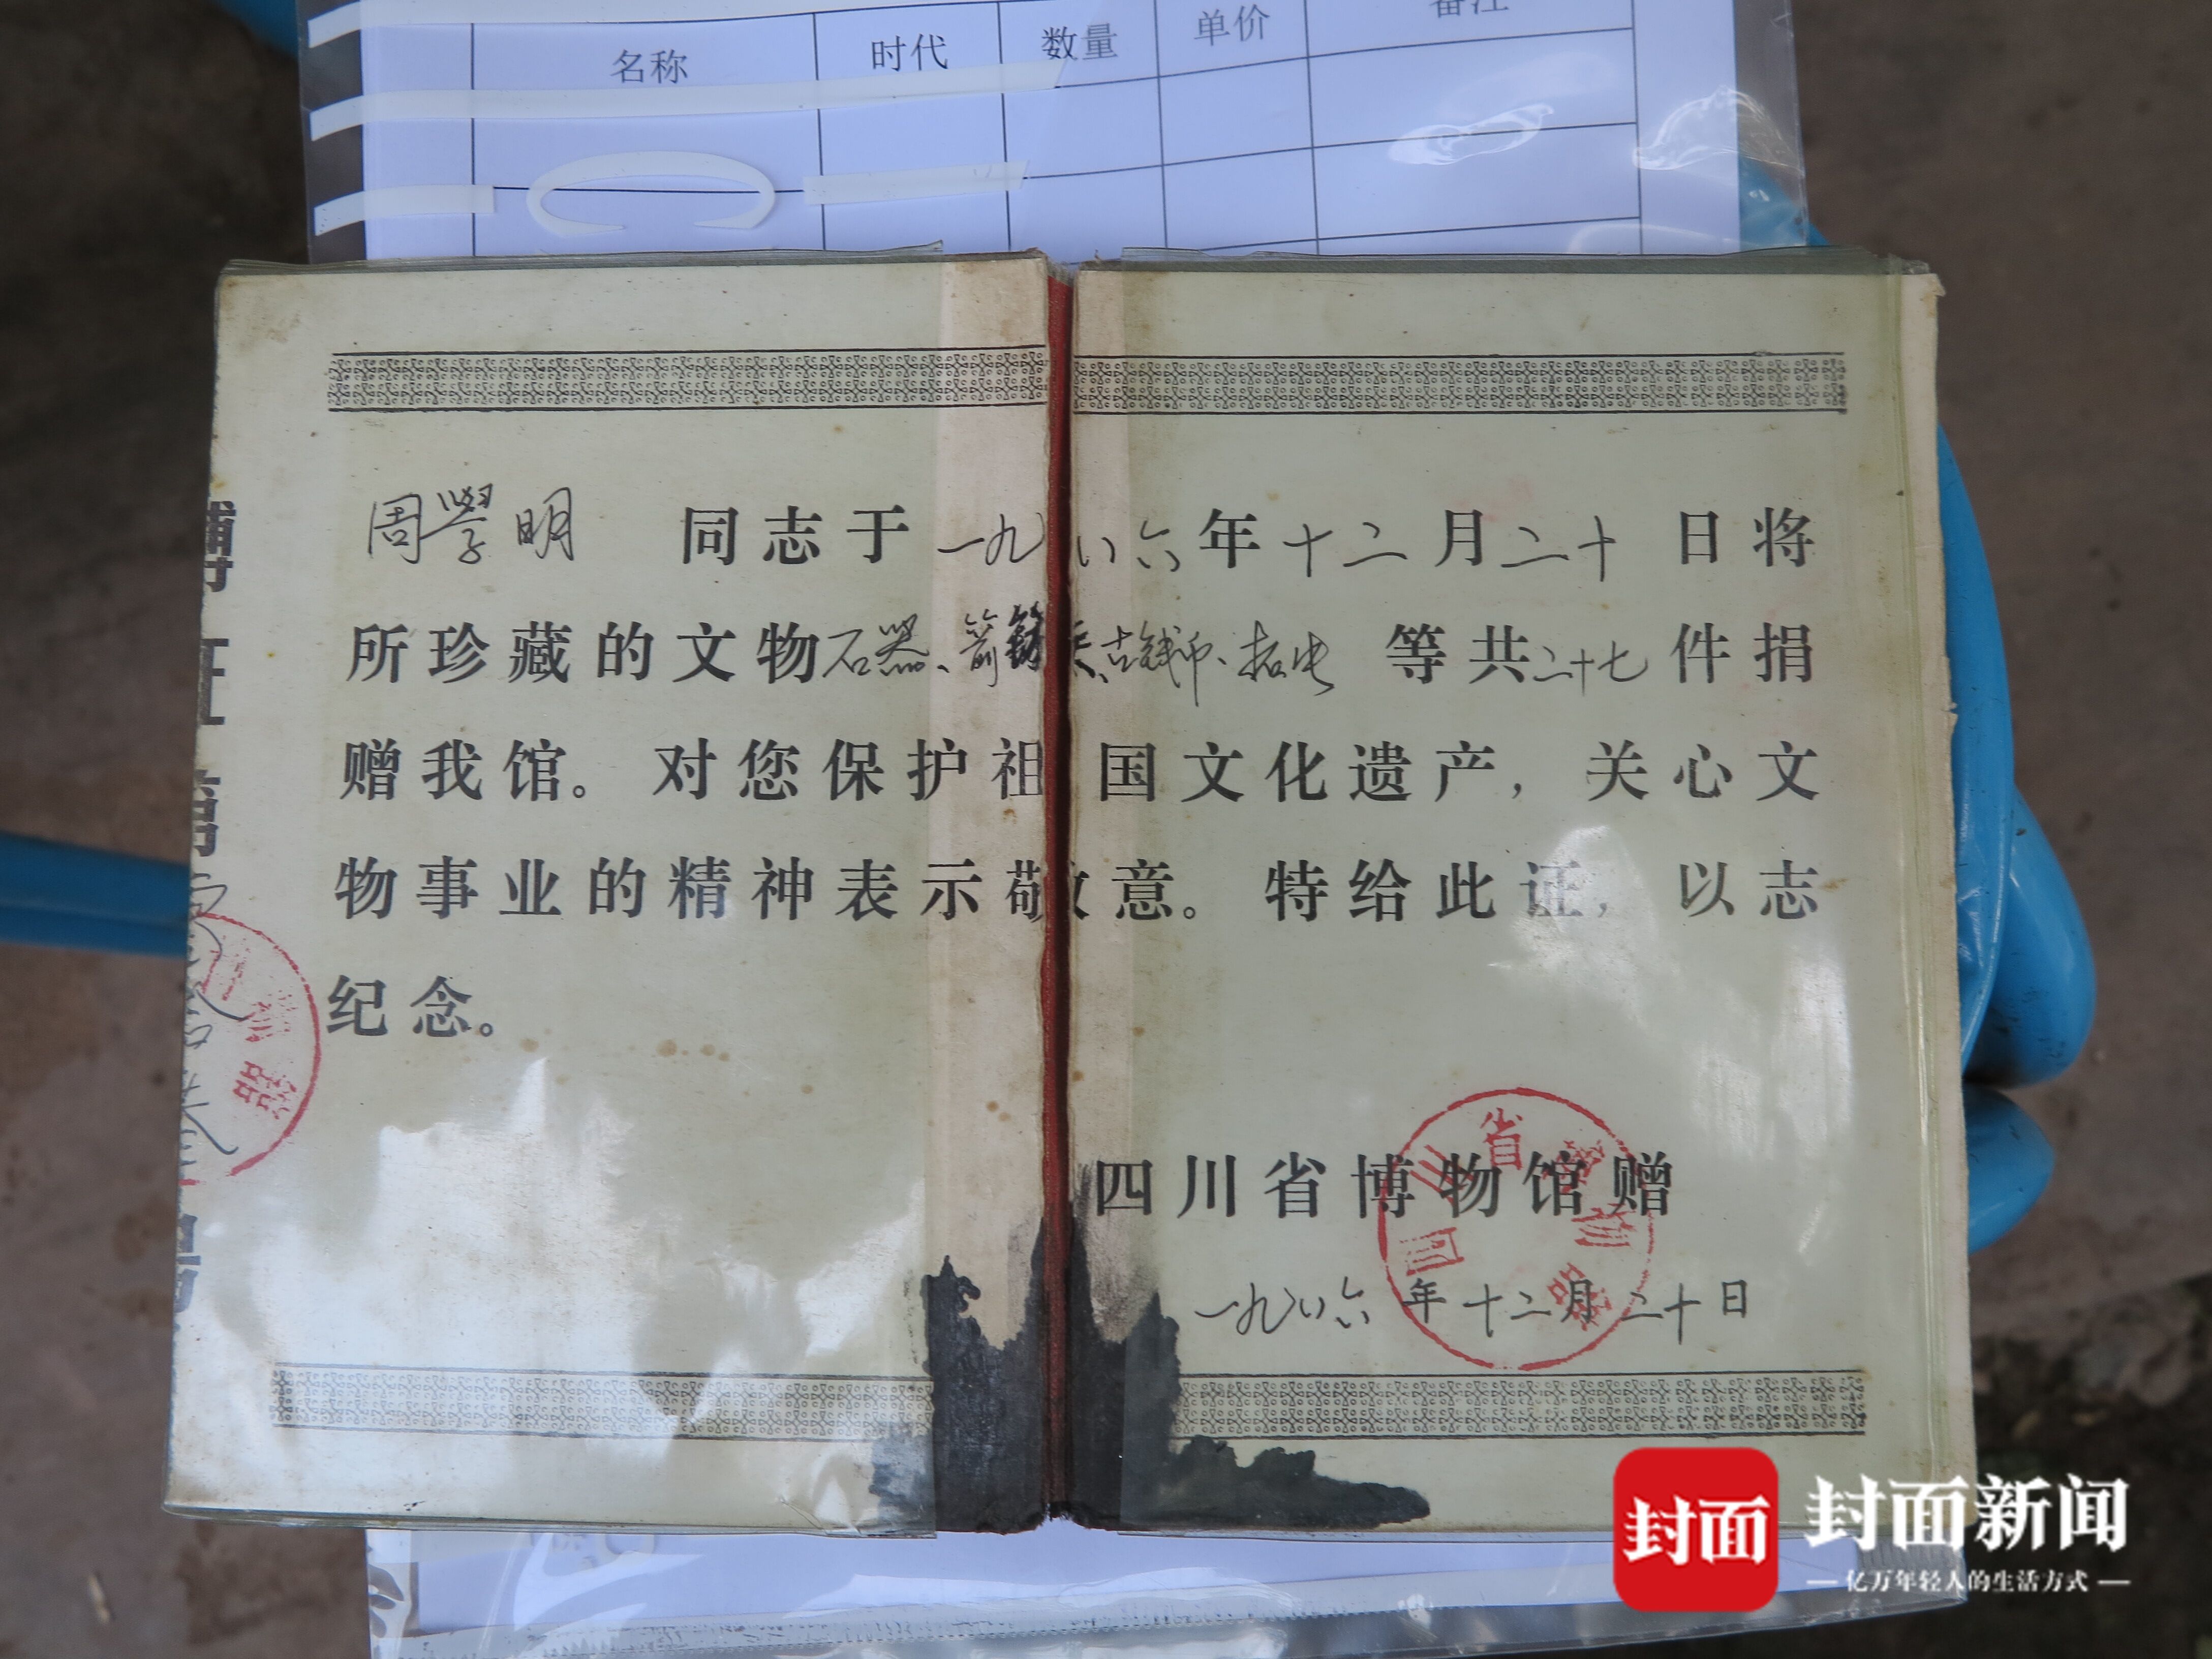 名称 时代 数量 单价 备注
周學明 同志于一九八六年十二月二十日将
所珍藏的文物石器、箭 古钱币、 等共二十七件捐
赠我馆。对您保护祖国文化遗产，关心文
物事业的精神表示敬意。特给此证，以志
纪念。
四川省博物馆赠
一九八六年十二月二十日
封面
封面新闻
亿万年轻人的生活方式